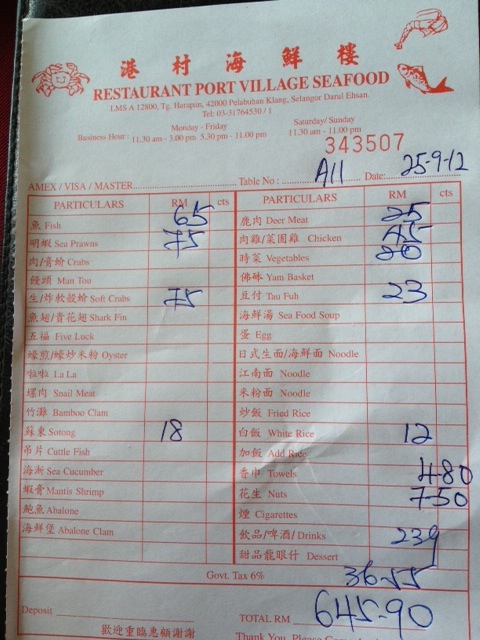 港村海鮮樓
RESTAURANT PORT VILLAGE SEAFOOD
LMS A 12800, Tg. Harapan, 42000 Pelabuhan Klang, Selangor Darul Ehsan.
Tel: 03-31764530 / 1
Monday - Friday Saturday/ Sunday
Business Hour : 11.30 am - 3.00 pm 5.30 pm - 11.00 pm 11.30 am - 11.00 pm
343507
AMEX / VISA / MASTER Table No : A11 Date: 25-9-12
PARTICULARS RM cts PARTICULARS RM cts
魚 Fish 65 鹿肉 Deer Meat 25
明蝦 Sea Prawns 75 肉雞/菜園雞 Chicken 45
肉/膏蟹 Crabs 時菜 Vegetables 20
饅頭 Man Tou 佛砵 Yam Basket
生/炸軟殼蟹 Soft Crabs 75 豆付 Tau Fuh 23
魚翅/賣花翅 Shark Fin 海鮮湯 Sea Food Soup
五福 Five Luck 蛋 Egg
蠔煎/蠔炒米粉 Oyster 日式生面/海鮮面 Noodle
啦啦 La La 江南面 Noodle
螺肉 Snail Meat 米粉面 Noodle
竹灘 Bamboo Clam 炒飯 Fried Rice
蘇東 Sotong 18 白飯 White Rice 12
吊片 Cuttle Fish 加飯 Add Rice
海渤 Sea Cucumber 香巾 Towels 4 80
蝦膏 Mantis Shrimp 花生 Nuts 7-50
鮑魚 Abalone 煙 Cigarettes
海鮮堡 Abalone Clam 飲品/啤酒/ Drinks 239
甜品龍眼什 Dessert
Govt. Tax 6% 36-55
Deposit TOTAL RM 645-90
歡迎重臨惠顧謝謝 Thank You, Please